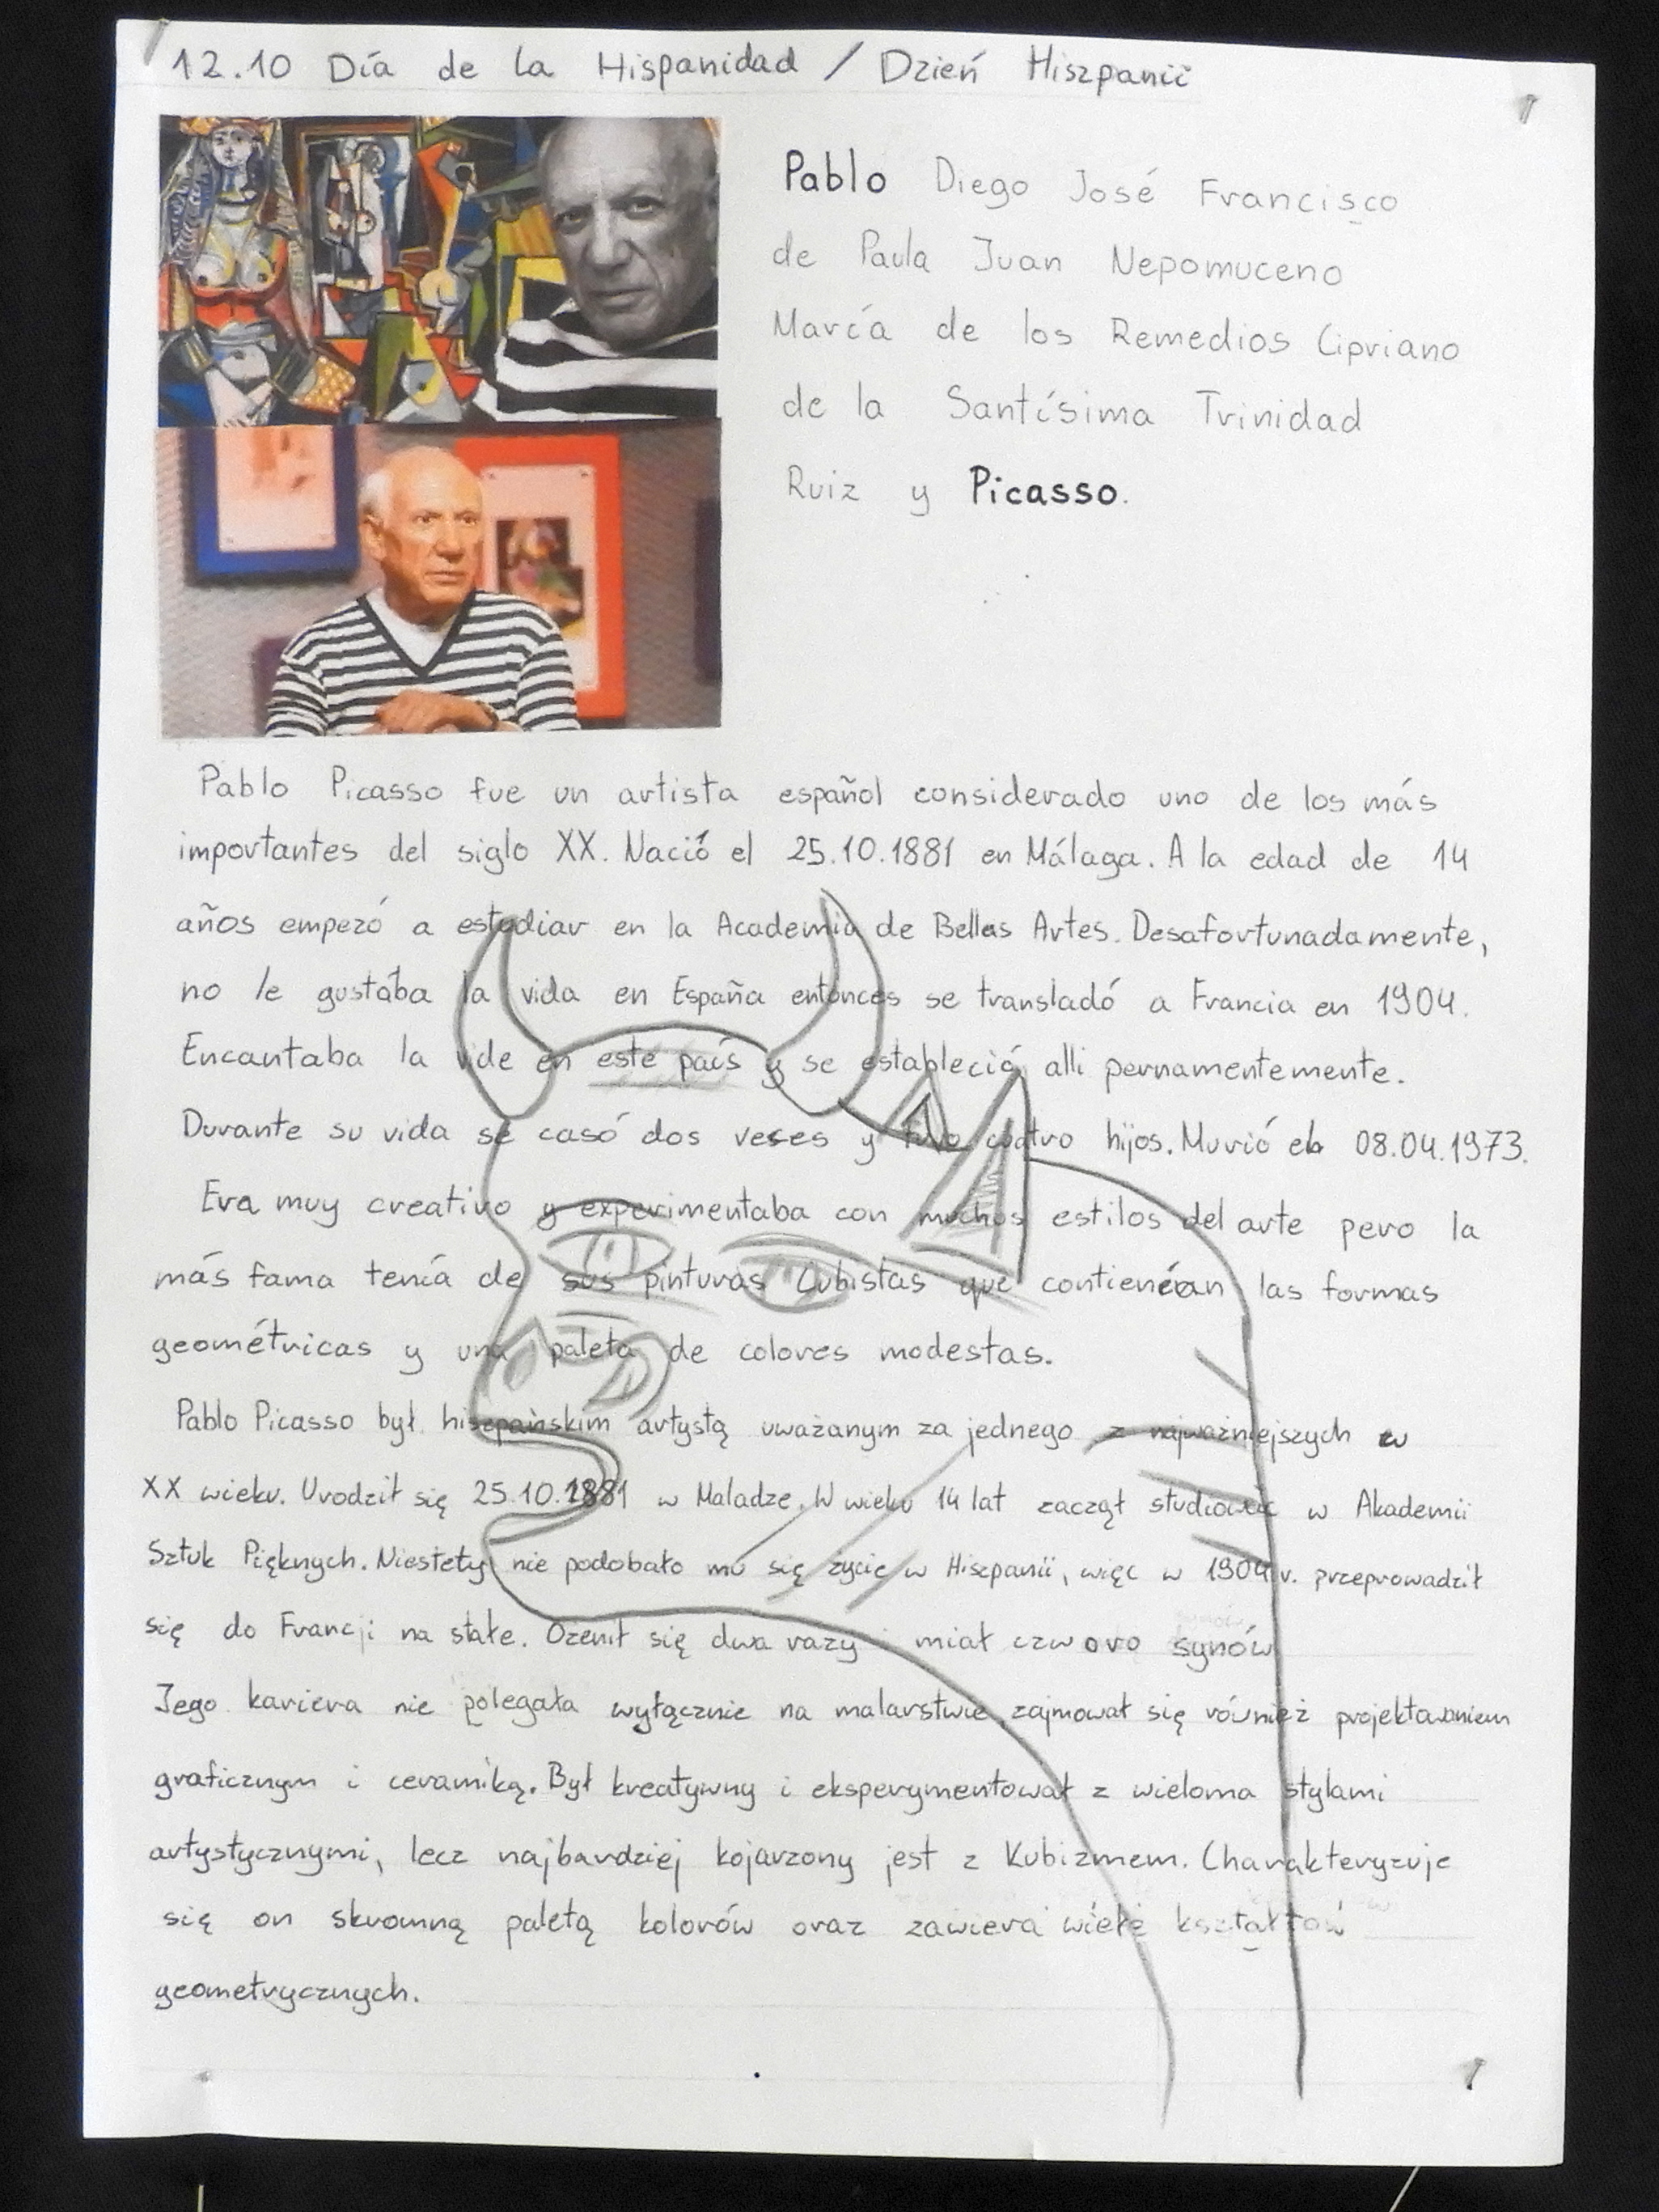 12.10 Día de la Hispanidad / Dzień Hiszpanii
Pablo Diego José Francisco
de Paula Juan Nepomuceno
María de los Remedios Cipriano
de la Santísima Trinidad
Ruiz y Picasso.
Pablo Picasso fue un artista español considerado uno de los más
importantes del siglo XX. Nació el 25.10.1881 en Málaga. A la edad de 14
años empezó a estudiar en la Academia de Bellas Artes. Desafortunadamente,
no le gustaba la vida en España entonces se transladó a Francia en 1904.
Encantaba la vide en este país y se estableció alli pernamentemente.
Durante su vida se casó dos veses y tuvo cuatro hijos. Murió el 08.04.1973.
Era muy creativo y experimentaba con muchos estilos del arte pero la
más fama tenía de sus pinturas Cubistas que contienían las formas
geométricas y una paleta de colores modestas.
Pablo Picasso był hiszpańskim artystą uważanym za jednego z najważniejszych w
XX wieku. Urodził się 25.10.1881 w Maladze. W wieku 14 lat zaczął studiować w Akademii
Sztuk Pięknych. Niestety nie podobało mu się życie w Hiszpanii, więc w 1904 r. przeprowadził
się do Francji na stałe. Ożenił się dwa razy i miał czworo synów
Jego kariera nie polegała wyłącznie na malarstwie, zajmował się również projektowaniem
graficznym i ceramiką. Był kreatywny i eksperymentował z wieloma stylami
artystycznymi, lecz najbardziej kojarzony jest z Kubizmem. Charakteryzuje
się on skromną paletą kolorów oraz zawiera wiele kształtów
geometrycznych.